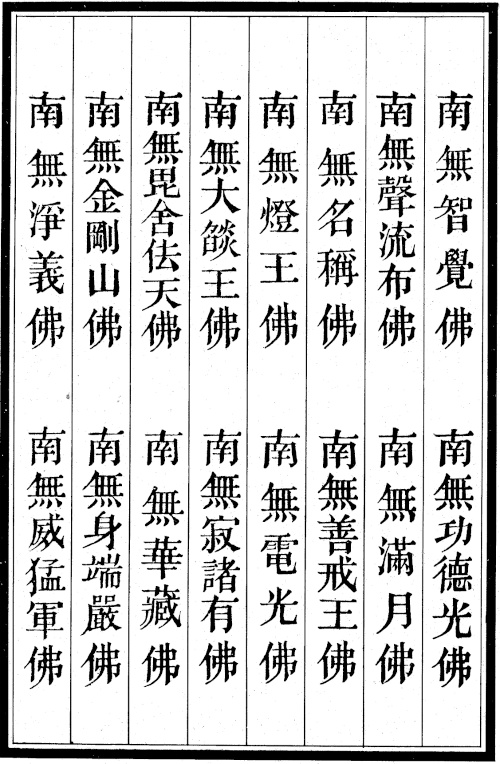 南無智覺佛　南無功德光佛
南無聲流布佛　南無滿月佛
南無名稱佛　南無善戒王佛
南無燈王佛　南無電光佛
南無大燄王佛　南無寂諸有佛
南無毘舍佉天佛　南無華藏佛
南無金剛山佛　南無身端嚴佛
南無淨義佛　南無威猛軍佛